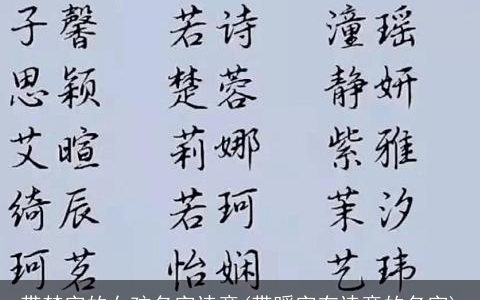 子馨 若诗 潼瑶
思颖 楚蓉 静妍
艾暄 莉娜 紫雅
绮辰 若珂 茉汐
珂茗 怡娴 艺玮
带楚字的女孩名字诗意(带暖字有诗意的名字)